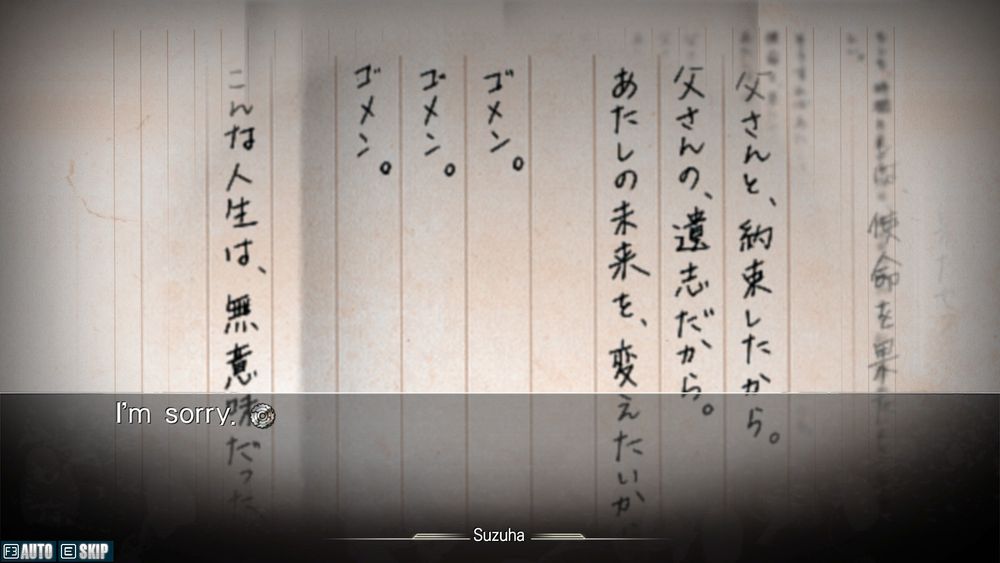 使命を果た
父さんと、約束したから。
父さんの、遺志だから。
あたしの未来を、変えたいか
ゴメン。
ゴメン。
ゴメン。
こんな人生は、無意味だった
I'm sorry.
Suzuha
F3 AUTO E SKIP